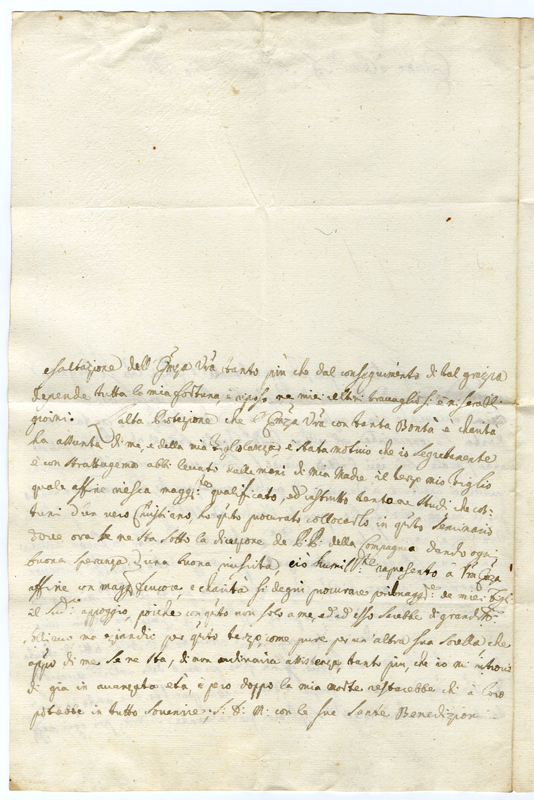 esaltazione dell' Emza Vra tanto più che dal conseguimento di tal grazia
depende tutta la mia fortuna, e riposo ne miei ultimi travagliosi e miserabili
giorni. L'alta Protezione che l'Emza Vra con tanta Bontà e charità
ha assunta di me, e della mia figliolanza è stata motivo che io segretamente
e con strattagemo abbi levato dalle mani di mia Madre il terzo mio figlio
quale affine riesca maggi: te qualificato, ed instrutto tanto ne studi che cos-
tumi d'un vero Christiano, ho qsto procurato collocarlo in qsto Seminario
dove ora se ne sta sotto la direzione de P.P. della Compagnia dando ogni
buona speranza d'una buona riuscita ciò humilte rapresento à l'Emza Vra
affine con maggr fervore e charità si degni procurare de miei figli
il Sud: appoggio, poiche con qsto non solo a me, ed ad esso sarebbe di grand
ma eziandio per qsto terzo, come pure per un'altra sua Sorella che
appo di me se ne sta, di non ordinaria assistenza, tanto più, che io mi ritrovo
di già in avanzata età, e però doppo la mia morte restarebbe chi à loro
potrebbe in tutto sovenire; con le sue Sante Benedizioni